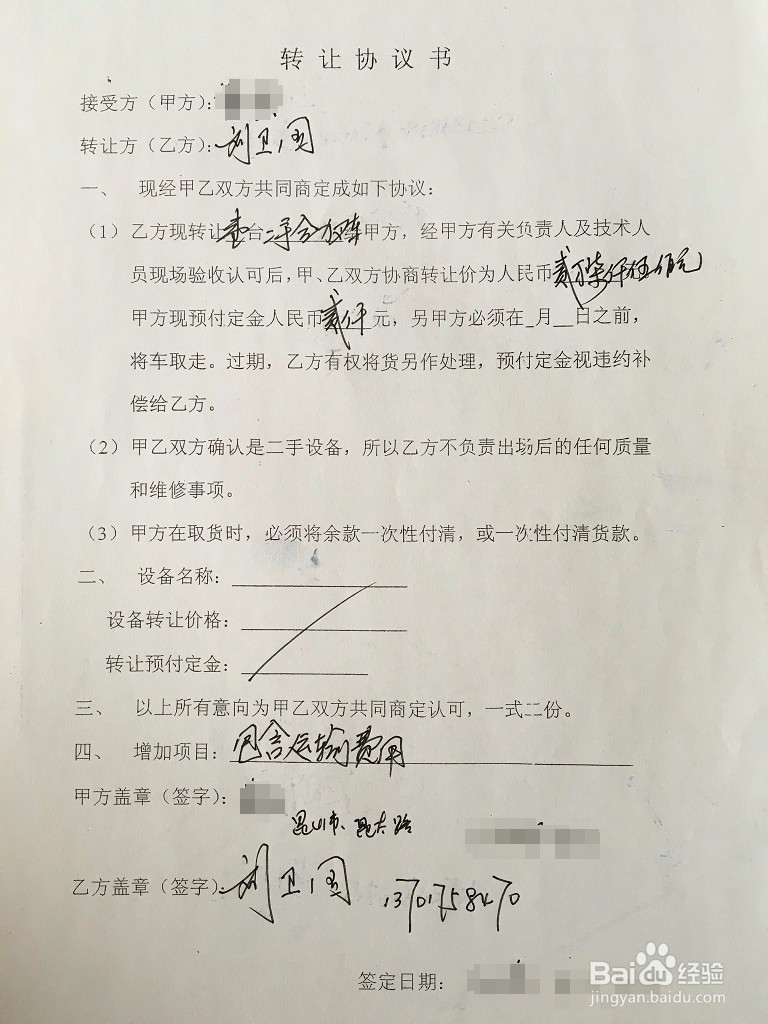 转让协议书
接受方（甲方）：
转让方（乙方）：刘卫国
一、 现经甲乙双方共同商定成如下协议：
（1）乙方现转让壹台二手 甲方，经甲方有关负责人及技术人
员现场验收认可后，甲、乙双方协商转让价为人民币贰万柒仟伍佰元
甲方现预付定金人民币贰仟元，另甲方必须在_月__日之前，
将车取走。过期，乙方有权将货另作处理，预付定金视违约补
偿给乙方。
（2）甲乙双方确认是二手设备，所以乙方不负责出场后的任何质量
和维修事项。
（3）甲方在取货时，必须将余款一次性付清，或一次性付清货款。
二、 设备名称：
设备转让价格：
转让预付定金：
三、 以上所有意向为甲乙双方共同商定认可，一式二份。
四、 增加项目：包含运输费用
甲方盖章（签字）：
昆山市、昆太路
乙方盖章（签字）：刘卫国 13701758470
签定日期：
Baidu经验
jingyan.baidu.com